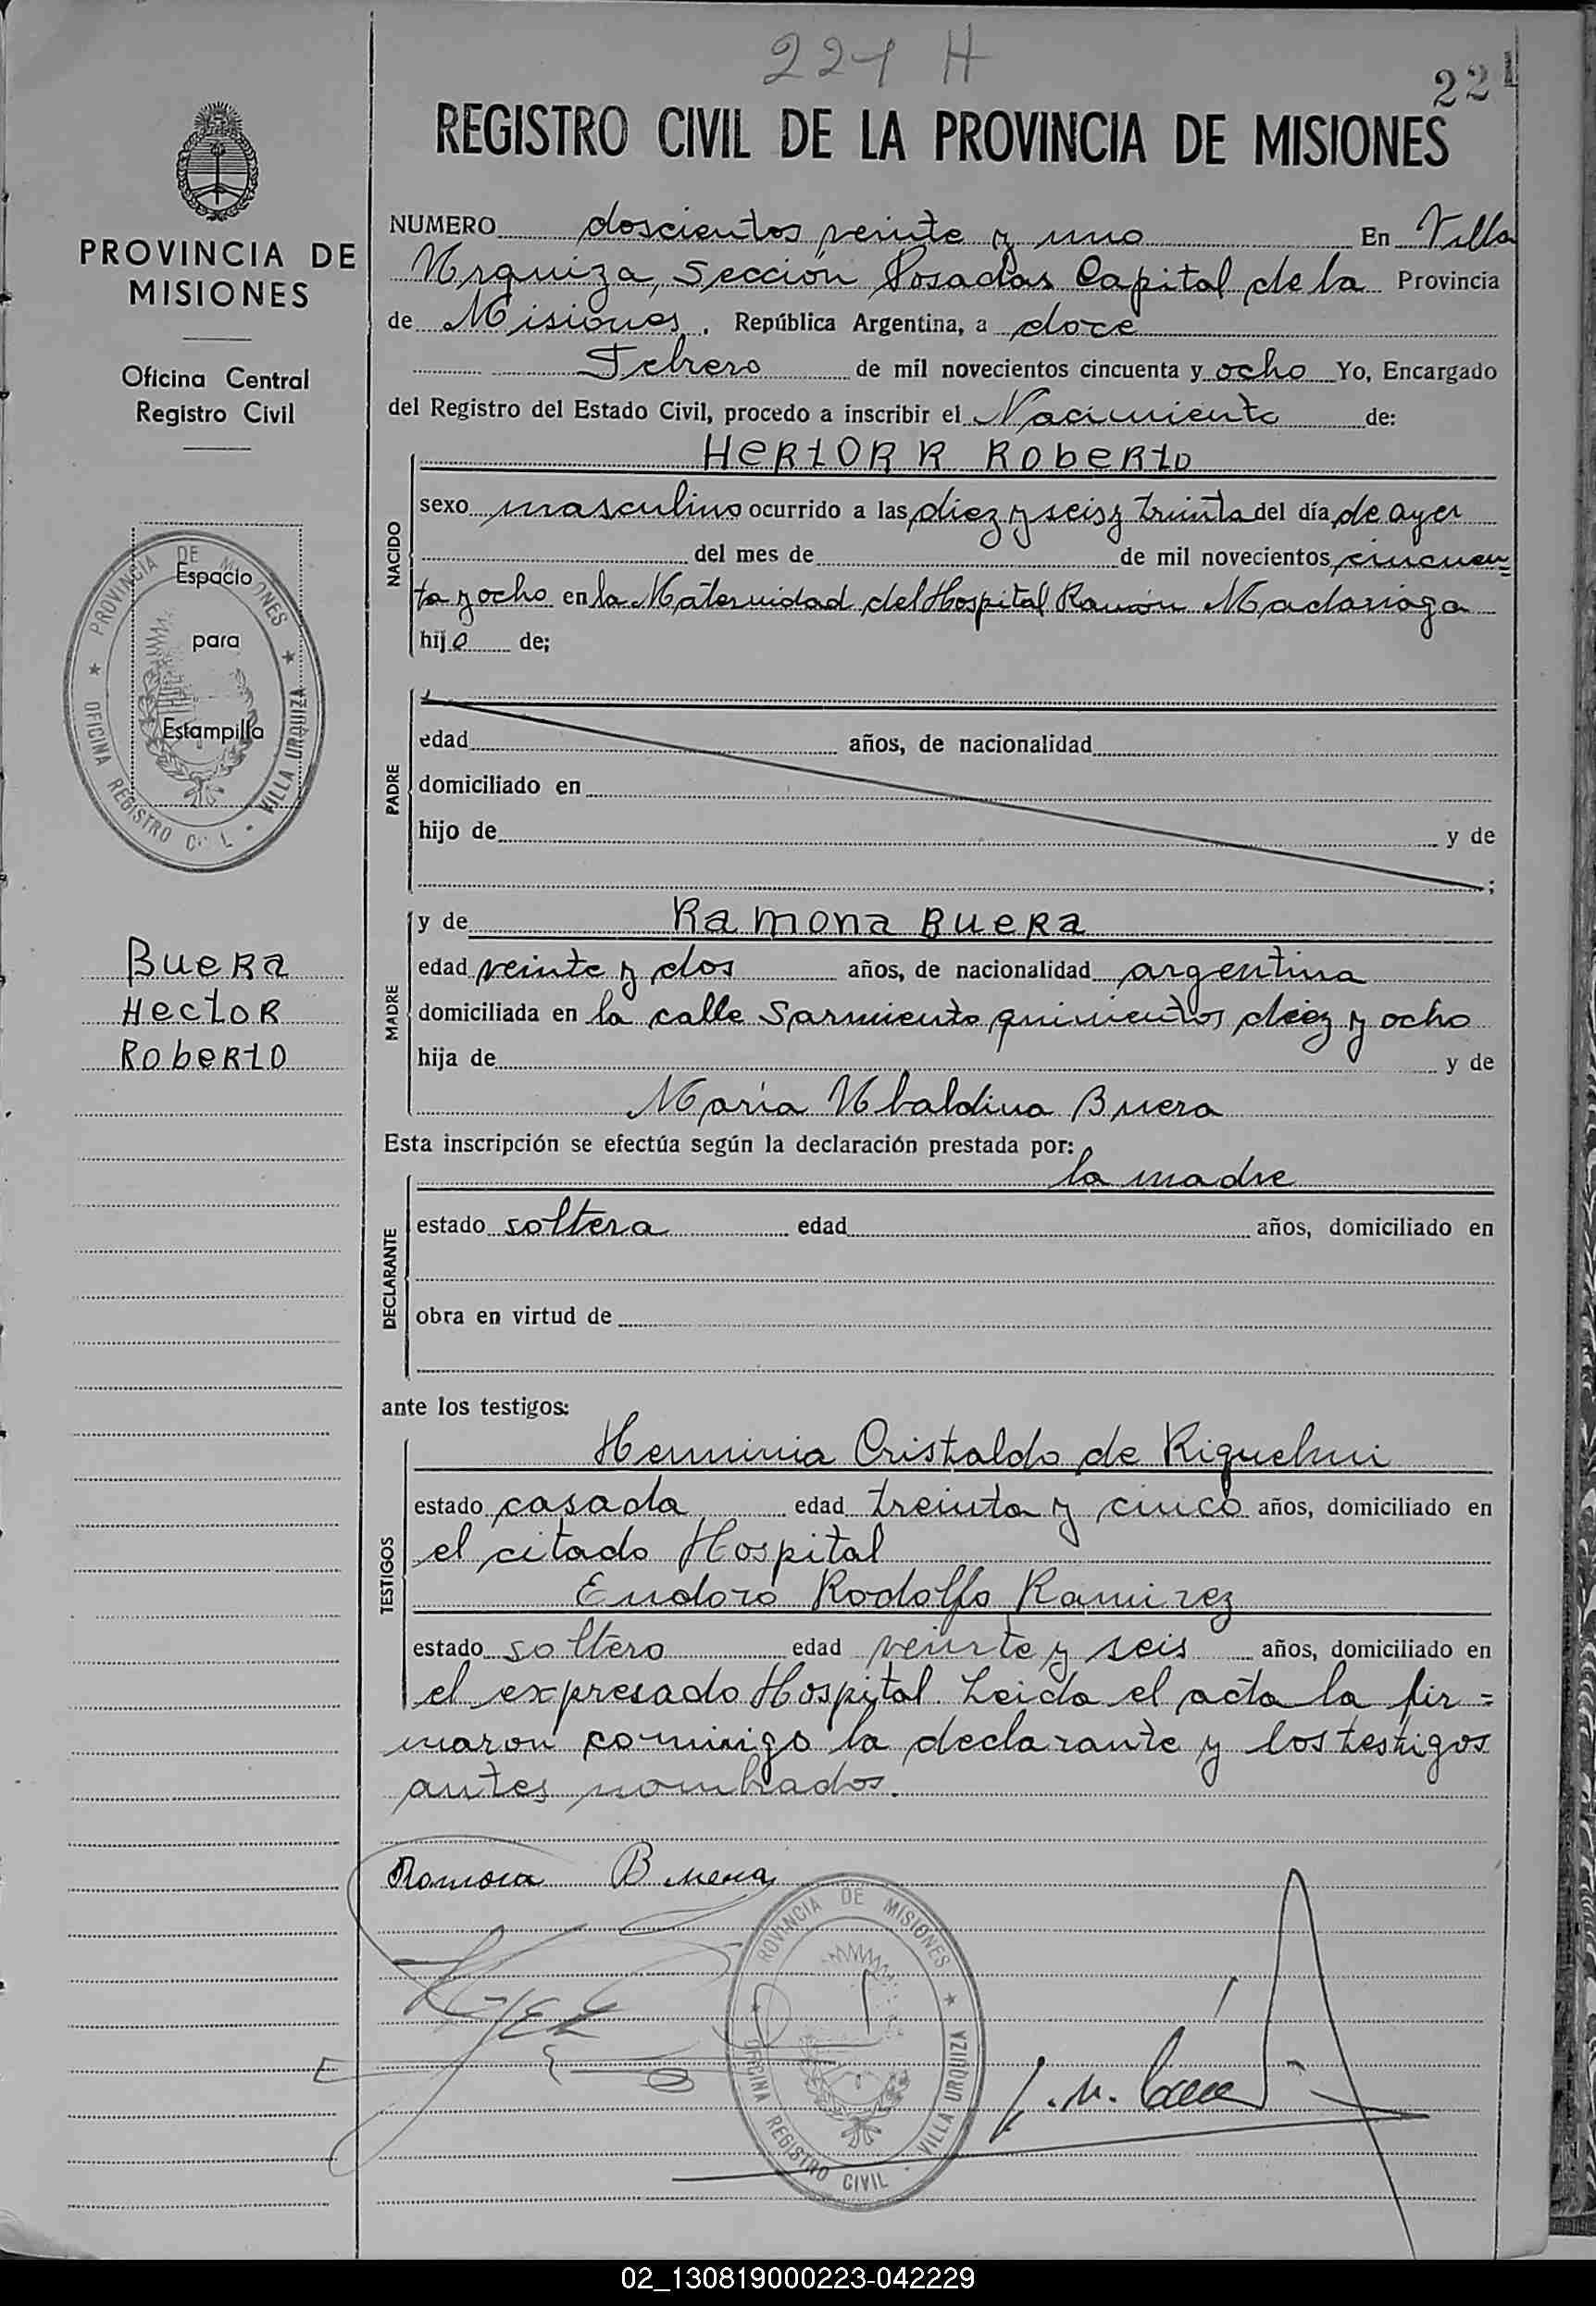 221 H
221
REGISTRO CIVIL DE LA PROVINCIA DE MISIONES
PROVINCIA DE
MISIONES
Oficina Central
Registro Civil
NUMERO doscientos veinte y uno En Villa
Urquiza, Sección Posadas Capital de la Provincia
de Misiones. República Argentina, a doce
Febrero de mil novecientos cincuenta y ocho Yo, Encargado
del Registro del Estado Civil, procedo a inscribir el Nacimiento de:
HERTOR R ROBERTO
NACIDO
sexo masculino ocurrido a las diez y seis y treinta del día de ayer
del mes de de mil novecientos cincuen=
ta y ocho en la Maternidad del Hospital Ramón Madariaga
hijo de;
PROVINCIA DE MISIONES
OFICINA REGISTRO CIVIL · VILLA URQUIZA
Espacio
para
Estampilla
PADRE
edad años, de nacionalidad
domiciliado en
hijo de y de
;
Buera
Hector
Roberto
MADRE
y de Ramona Buera
edad veinte y dos años, de nacionalidad argentina
domiciliada en la calle Sarmiento quinientos diez y ocho
hija de y de
María Ubaldina Buera
Esta inscripción se efectúa según la declaración prestada por:
la madre
DECLARANTE
estado soltera edad años, domiciliado en
obra en virtud de
ante los testigos:
TESTIGOS
Herminia Cristaldo de Riquelmi
estado casada edad treinta y cinco años, domiciliado en
el citado Hospital
Eudoro Rodolfo Ramirez
estado soltero edad veinte y seis años, domiciliado en
el expresado Hospital. Leida el acta la fir=
maron conmigo la declarante y los testigos
antes nombrados.
Ramona Buera
PROVINCIA DE MISIONES
OFICINA REGISTRO CIVIL · VILLA URQUIZA
02_130819000223-042229